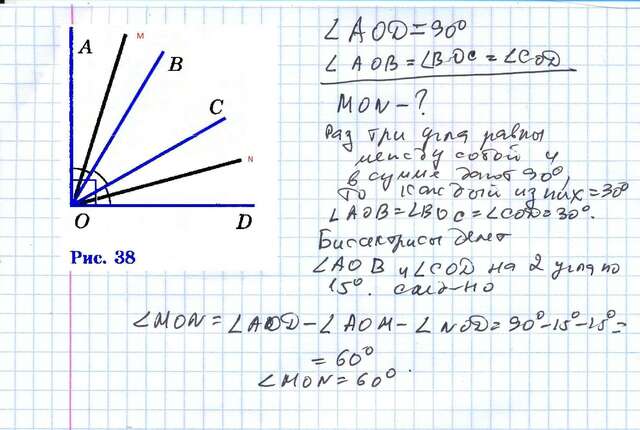 A
M
B
C
N
O
D
Рис. 38
∠AOD=90°
∠AOB=∠BOC=∠COD
MON-?
Раз три угла равны
между собой и
в сумме дают 90°,
то каждый из них=30°
∠AOB=∠BOC=∠COD=30°.
Биссектрисы делят
∠AOB и ∠COD на 2 угла по
15°. след-но
∠MON=∠AOD-∠AOM-∠NOD=90°-15°-15°=
=60°
∠MON=60°.